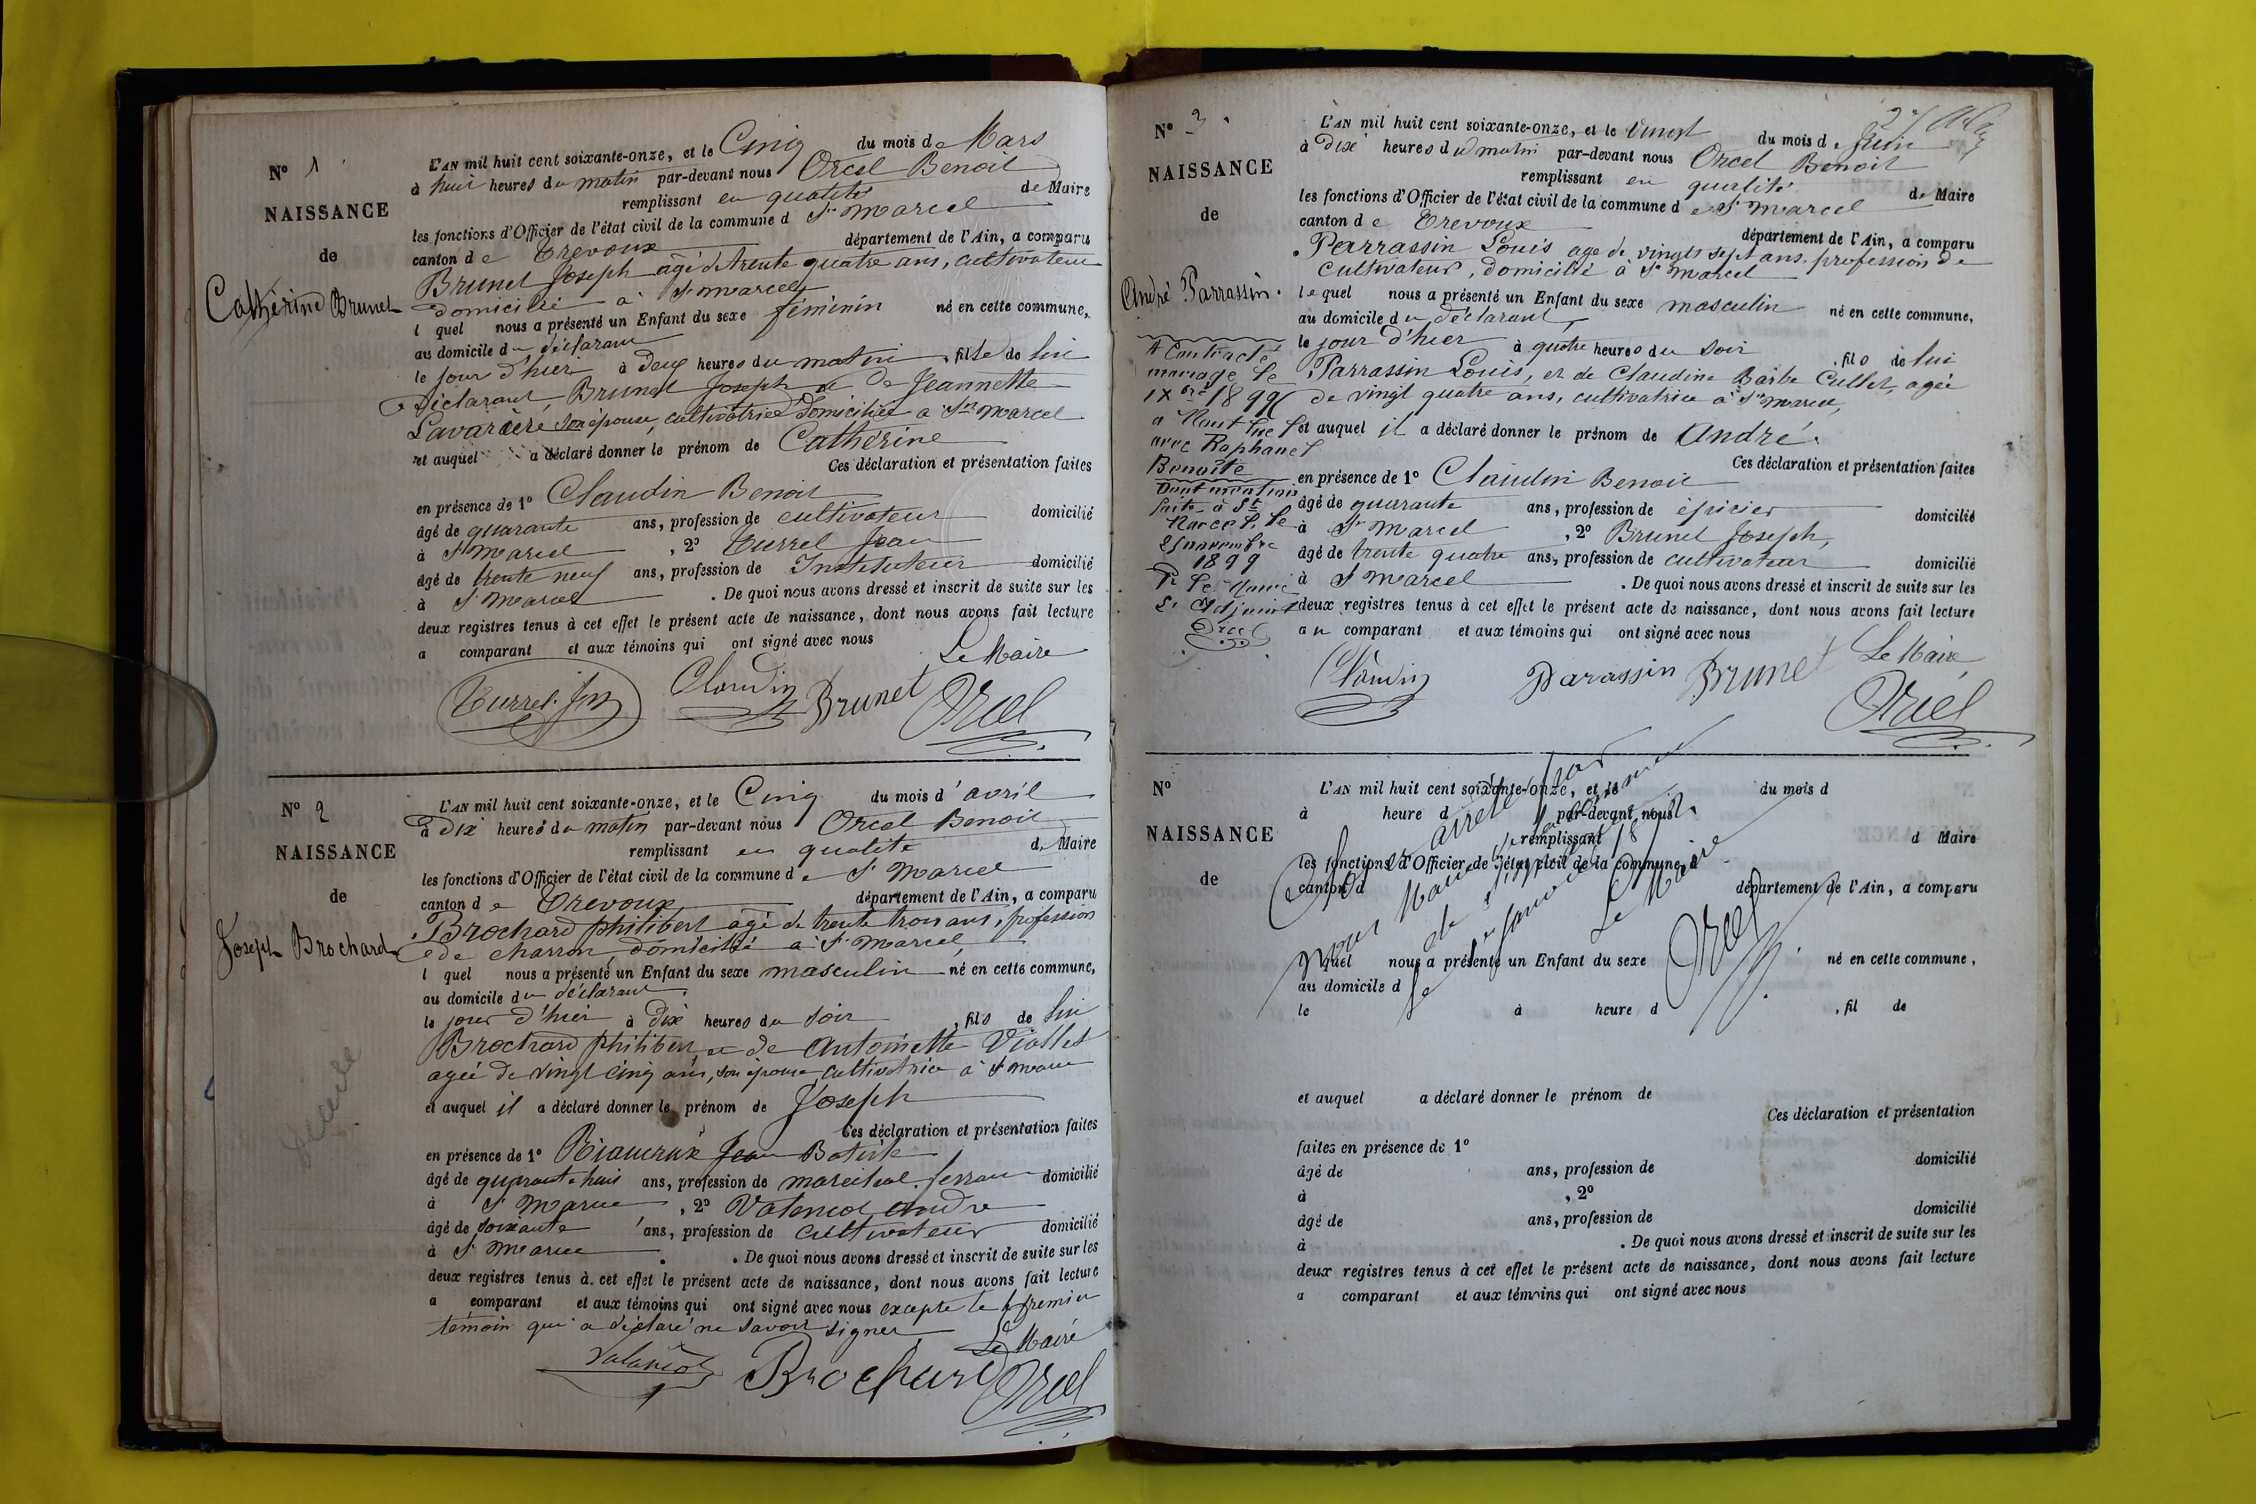 N° 1
NAISSANCE
de
Catherine Brunet
L'AN mil huit cent soixante-onze, et le Cinq du mois de Mars
à huit heures du matin par-devant nous Orcel Benoit
remplissant en qualité de Maire
les fonctions d'Officier de l'état civil de la commune d St Marcel
canton de Trevoux département de l'Ain, a comparu
Brunet Joseph âgé de trente quatre ans, cultivateur
domicilié à St Marcel
l quel nous a présenté un Enfant du sexe féminin né en cette commune,
au domicile du déclarant
le jour d'hier à deux heures du matin, fille de lui
déclarant, Brunet Joseph et de Jeannette
son épouse, cultivatrice domiciliée à St Marcel
et auquel a déclaré donner le prénom de Catherine
Ces déclaration et présentation faites
en présence de 1° Claudin Benoit
âgé de quarante ans, profession de cultivateur domicilié
à St Marcel, 2° Turrel Jean
âgé de trente neuf ans, profession de Instituteur domicilié
à St Marcel. De quoi nous avons dressé et inscrit de suite sur les
deux registres tenus à cet effet le présent acte de naissance, dont nous avons fait lecture
a comparant et aux témoins qui ont signé avec nous
Le Maire
Turrel Claudin Brunet Orcel
N° 2
NAISSANCE
de
Joseph Brochard
L'AN mil huit cent soixante-onze, et le Cinq du mois d'avril
à Dix heures du matin par-devant nous Orcel Benoit
remplissant en qualité de Maire
les fonctions d'Officier de l'état civil de la commune de St Marcel
canton de Trevoux département de l'Ain, a comparu
Brochard philibert âgé de trente trois ans, profession
de charron, domicilié à St Marcel,
l quel nous a présenté un Enfant du sexe masculin né en cette commune,
au domicile du déclarant
le jour d'hier à dix heures du soir, fils de lui
Brochard philibert et de Antoinette Viollet
agée de vingt cinq ans, son épouse, cultivatrice à St Marcel
et auquel il a déclaré donner le prénom de Joseph
Ces déclaration et présentation faites
en présence de 1° Jean Batiste
âgé de quarante huit ans, profession de marechal ferrant domicilié
à St Marcel, 2° Valancot andre
âgé de soixante ans, profession de cultivateur domicilié
à St Marcel. De quoi nous avons dressé et inscrit de suite sur les
deux registres tenus à cet effet le présent acte de naissance, dont nous avons fait lecture
a comparant et aux témoins qui ont signé avec nous excepté le premier
témoin qui a déclaré ne savoir signer
Le Maire
Valancot Brochard Orcel
N° 3
NAISSANCE
de
André Parrassin.
L'AN mil huit cent soixante-onze, et le vingt du mois de Juin
à Dix heures du matin par-devant nous Orcel Benoit
remplissant en qualité de Maire
les fonctions d'Officier de l'état civil de la commune de St Marcel
canton de Trevoux département de l'Ain, a comparu
Parrassin Louis age de vingt sept ans. profession de
cultivateur, domicilié à St Marcel
lequel nous a présenté un Enfant du sexe masculin né en cette commune,
au domicile du déclarant,
le jour d'hier à quatre heures du soir, fils de lui
Parrassin Louis, et de Claudine Barbe Cullet, agée
de vingt quatre ans, cultivatrice à St Marcel,
et auquel il a déclaré donner le prénom de André.
Ces déclaration et présentation faites
en présence de 1° Claudin Benoit
âgé de quarante ans, profession de épicier domicilié
à St Marcel, 2° Brunet Joseph,
âgé de trente quatre ans, profession de cultivateur domicilié
à St Marcel. De quoi nous avons dressé et inscrit de suite sur les
deux registres tenus à cet effet le présent acte de naissance, dont nous avons fait lecture
au comparant et aux témoins qui ont signé avec nous
Le Maire
Claudin Parassin Brunet Orcel
A Contracté
mariage le
1899
avec Raphanel
Benoite
Dont mention
faite à St
Marcel, le
novembre
1899
Pr le Maire
L' Adjoint
Orcel
N°
NAISSANCE
de
L'AN mil huit cent soixante-onze, et le du mois d
à heure d par-devant nous
remplissant d Maire
les fonctions d'Officier de l'état civil de la commune d
canton d département de l'Ain, a comparu
quel nous a présenté un Enfant du sexe né en cette commune,
au domicile d
le à heure d, fil de
et auquel a déclaré donner le prénom de
Ces déclaration et présentation
faites en présence de 1°
âgé de ans, profession de domicilié
à, 2°
âgé de ans, profession de domicilié
à. De quoi nous avons dressé et inscrit de suite sur les
deux registres tenus à cet effet le présent acte de naissance, dont nous avons fait lecture
a comparant et aux témoins qui ont signé avec nous
Clos et arrêté par
Nous Maire
Le Maire
Orcel